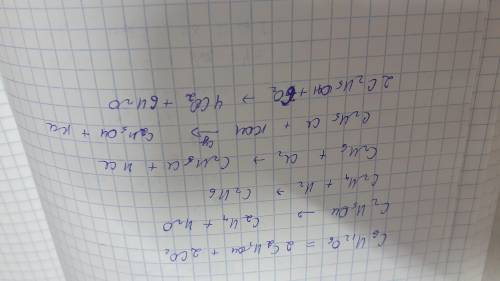 C₆H₁₂O₆ = 2C₂H₅OH + 2CO₂
C₂H₅OH → C₂H₄ + H₂O
C₂H₄ + H₂ → C₂H₆
C₂H₆ + Cl₂ → C₂H₅Cl + HCl
C₂H₅Cl + KOH → C₂H₅OH + KCl
2C₂H₅OH + O₂ → 4CO₂ + 6H₂O